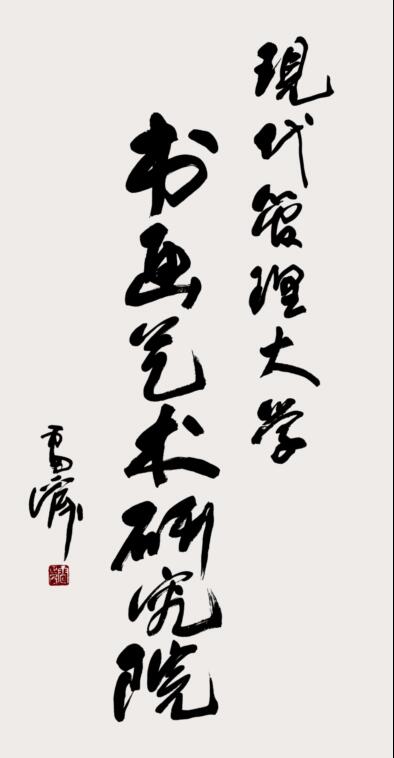 現代管理大学
书画艺术研究院